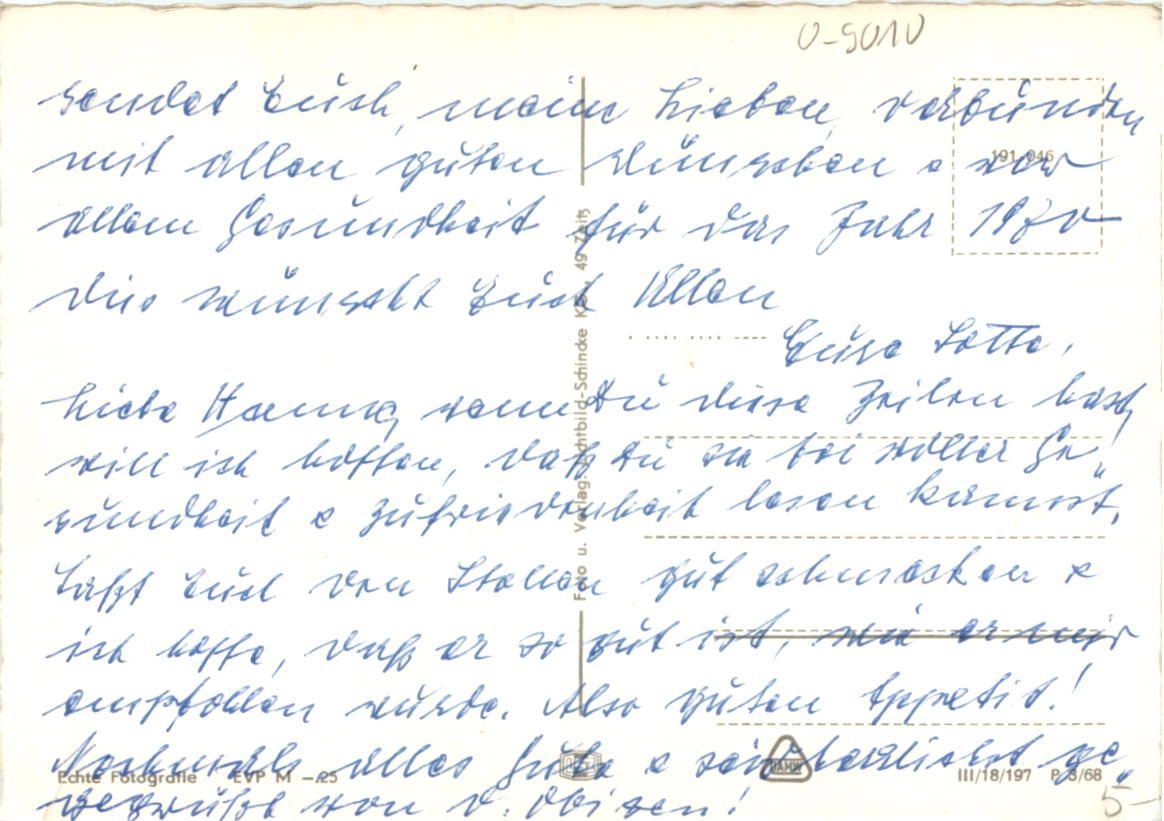 O-9010
sendet Euch, meine Lieben, verbunden
191 046
mit allen guten Wünschen & vor
allem Gesundheit für das Jahr 1970
dies wünscht Euch Allen
Eure Lotte,
Liebe Hanna, wenn Du diese Zeilen hast,
will ich hoffen, daß Du sie bei voller Ge„
sundheit & Zufriedenheit lesen kannst,
Laßt Euch den Stollen gut schmecken &
ich hoffe, daß er so gut ist, wie er mir
empfohlen wurde. Also guten Appetit!
Nochmals alles Gute & sei herzlichst ge„
gegrüßt von d. Obigen!
Foto u. Verlag: Lichtbild-Schincke KG, 49 Zeitz
Echte Fotografie EVP M –.25
III/18/197 P 3/68
5-